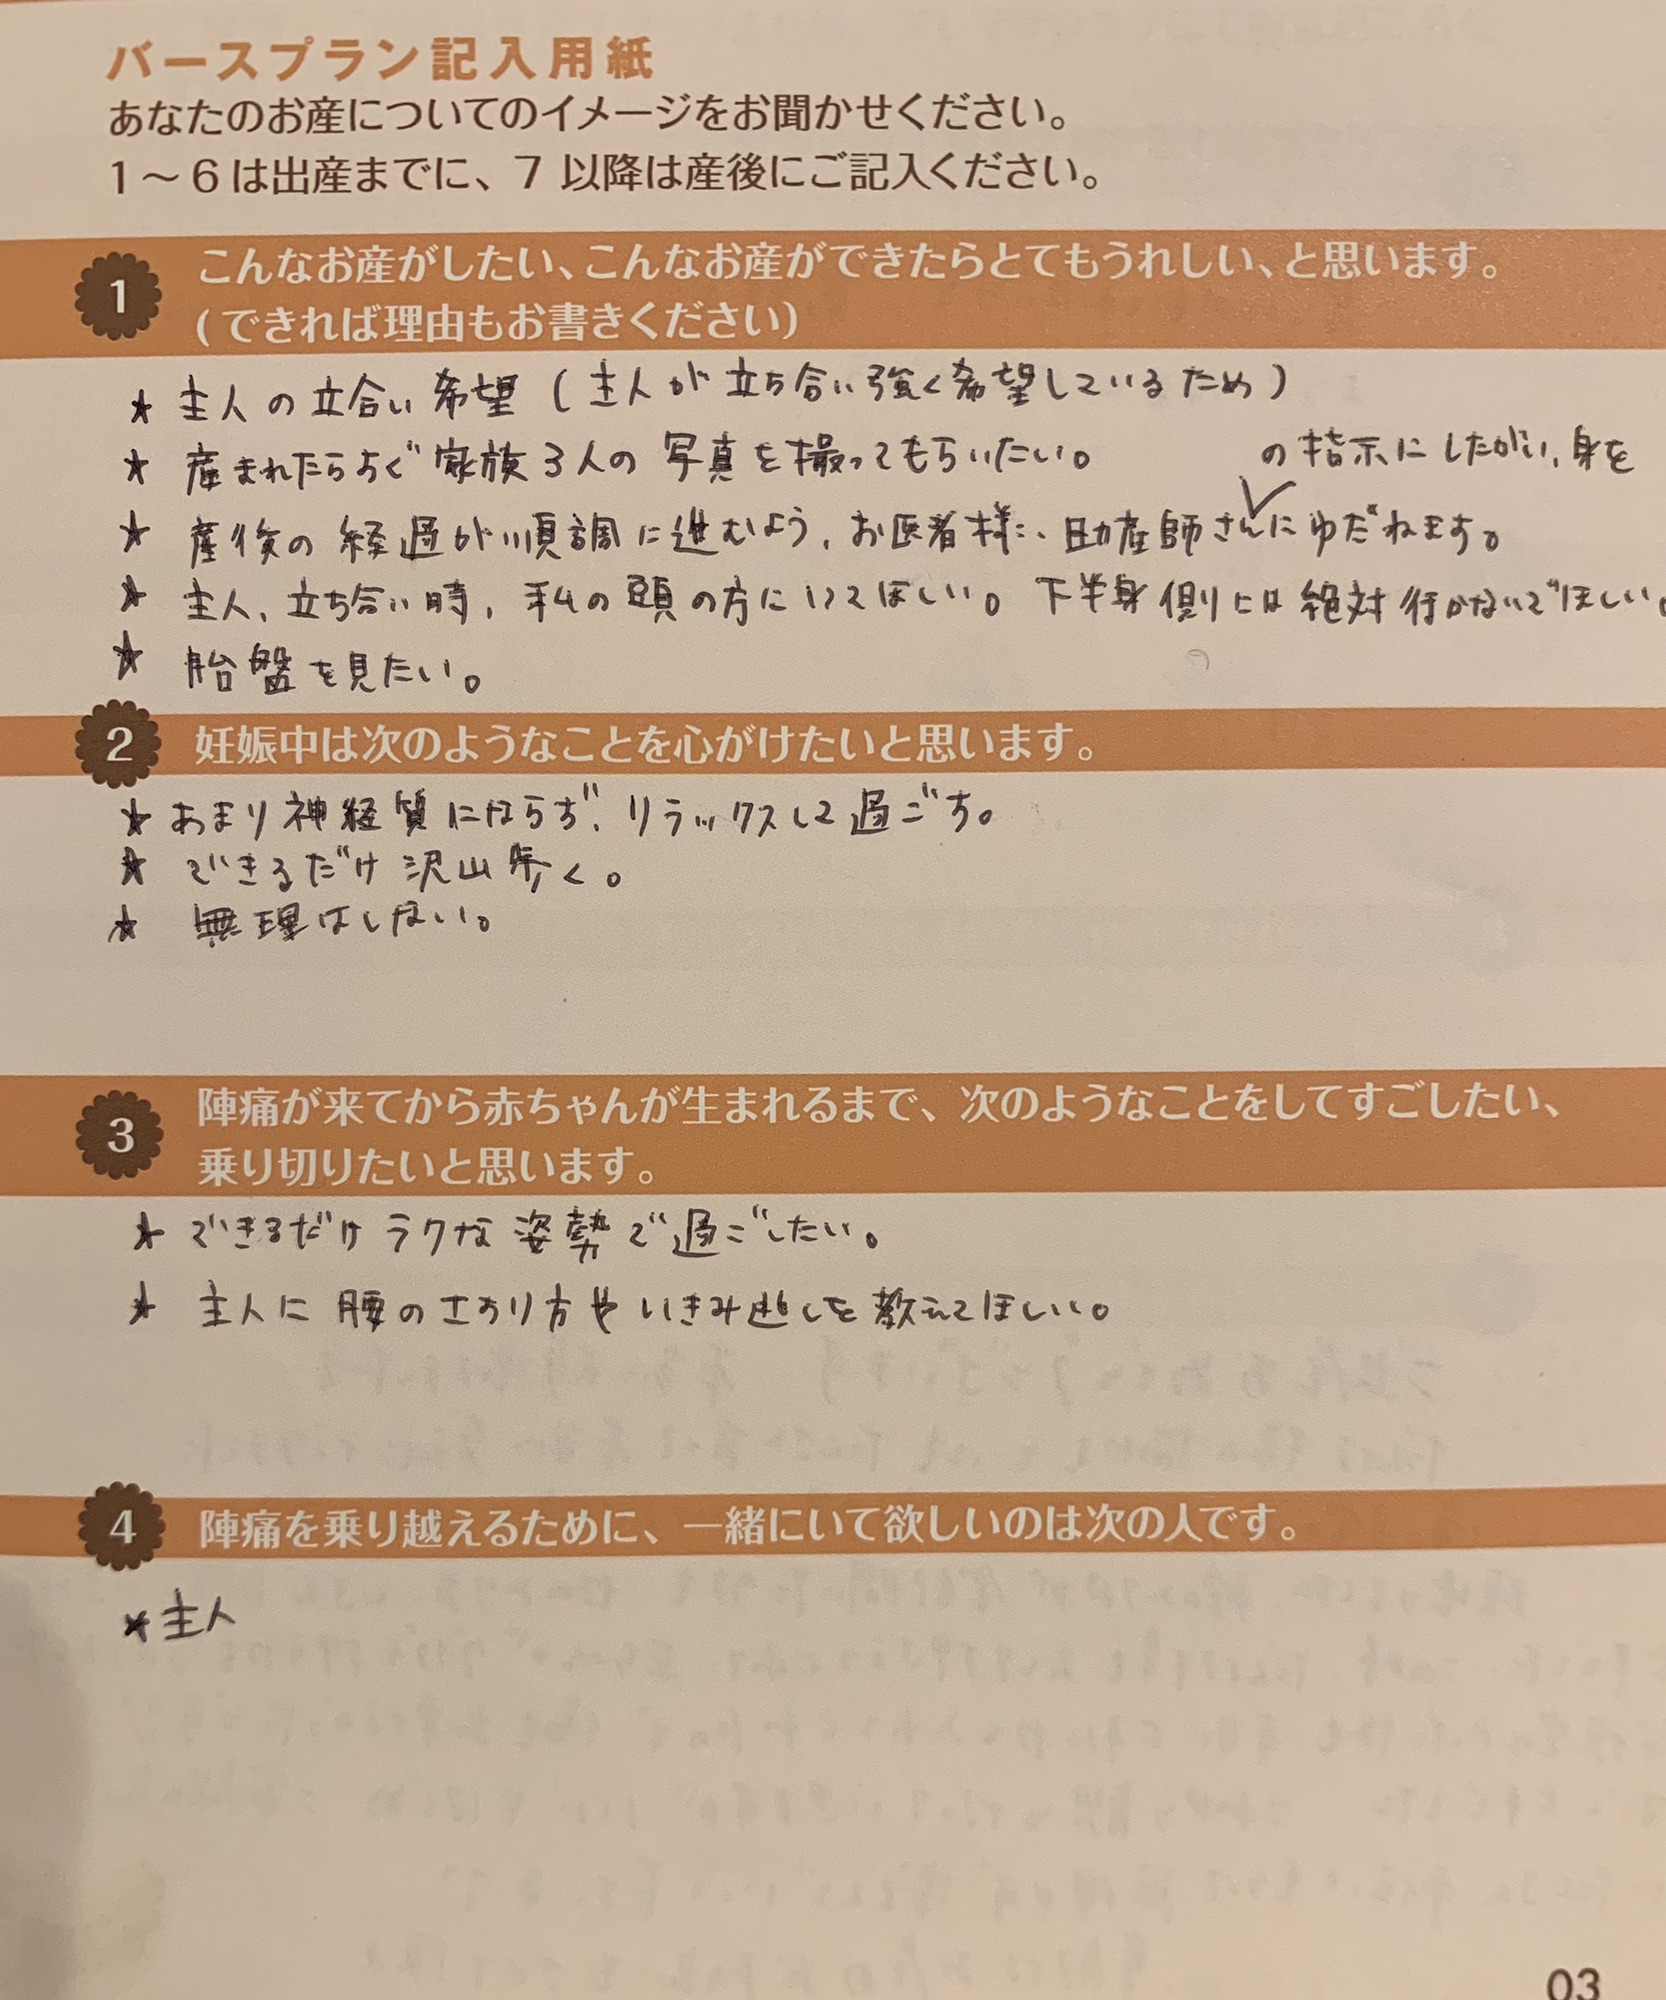 バースプラン記入用紙
あなたのお産についてのイメージをお聞かせください。
1〜6は出産までに、7以降は産後にご記入ください。
1 こんなお産がしたい、こんなお産ができたらとてもうれしい、と思います。
(できれば理由もお書きください)
★ 主人の立合い希望(主人が立ち合い強く希望しているため)
★ 産まれたらすぐ家族3人の写真を撮ってもらいたい。
の指示にしたがい、身を
★ 産後の経過が順調に進むよう、お医者様、助産師さん✓にゆだねます。
★ 主人、立ち合い時、私の頭の方にいてほしい。下半身側には絶対行かないでほしい。
★ 胎盤を見たい。
2 妊娠中は次のようなことを心がけたいと思います。
★ あまり神経質にならず、リラックスして過ごす。
★ できるだけ沢山歩く。
★ 無理はしない。
3 陣痛が来てから赤ちゃんが生まれるまで、次のようなことをしてすごしたい、
乗り切りたいと思います。
★ できるだけラクな姿勢で過ごしたい。
★ 主人に腰のさすり方やいきみ逃しを教えてほしい。
4 陣痛を乗り越えるために、一緒にいて欲しいのは次の人です。
★主人
03